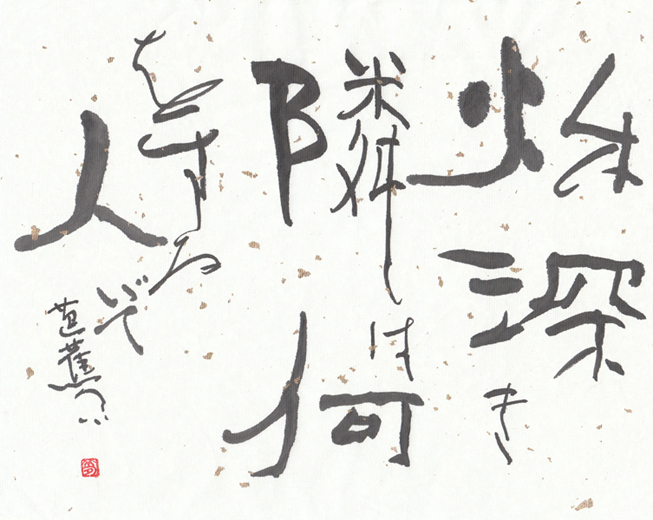 秋深き
隣は何
をする
人ぞ
芭蕉句